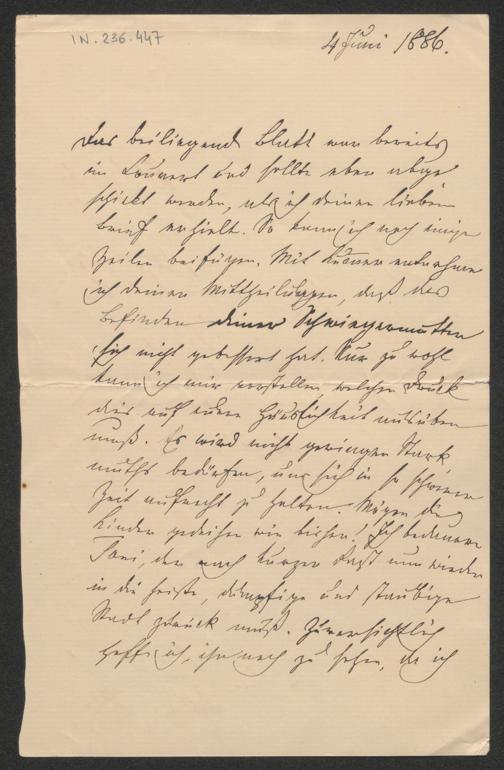 IN. 236.447
4 Juni 1886.
Das beiliegende Blatt war bereits
im Couvert und sollte eben abge
schickt werden, als ich deinen lieben
Brief erhielt. So kann ich noch einige
Zeilen beifügen. Mit Kummer entnehme
ich deinen Mittheilungen, daß das
Befinden deiner Schwiegermutter
sich nicht gebessert hat. Nur zu wohl
kann ich mir vorstellen, welchen Druck
dies auf eure Häuslichkeit ausüben
muß. Es wird nicht geringen Stark
muths bedürfen, um sich in so schwerer
Zeit aufrecht zu halten. Mögen die
Kinder gedeihen wie bisher! Ich bedauere
Toni, der nach kurzer Rast nun wieder
in die heiße, dumpfige und staubige
Stadt zurück muß. Zuversichtlich
hoffe ich, ihn noch zu sehen, da ich